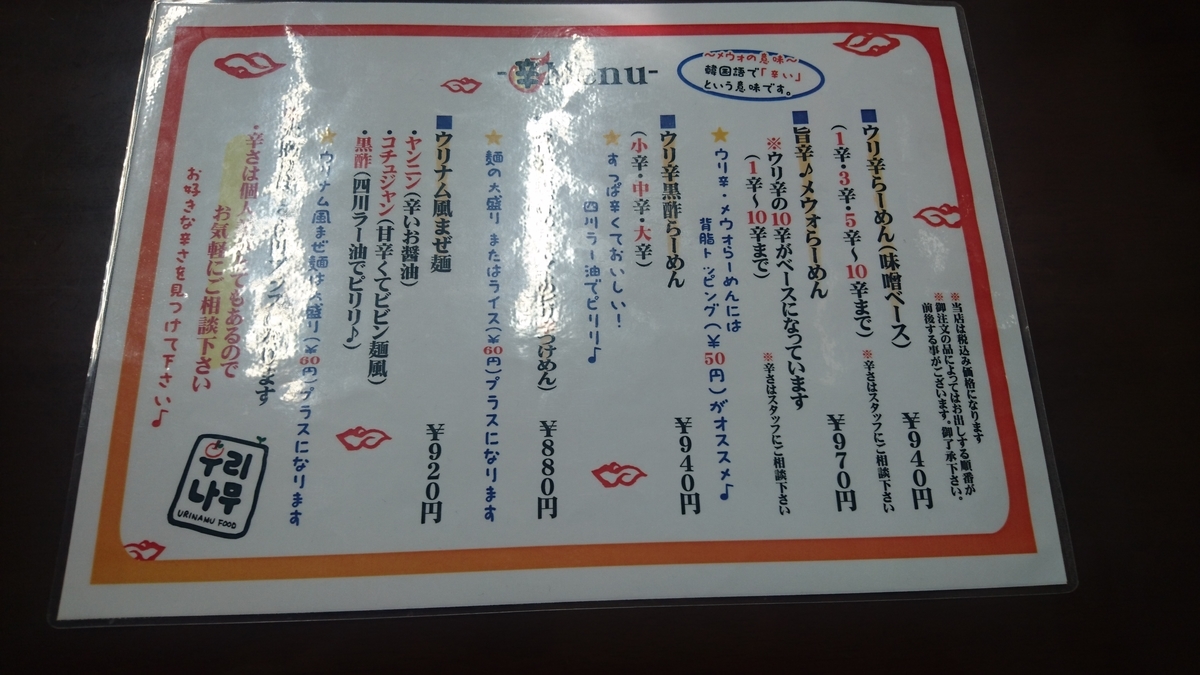 -辛Menu-
〜メウォの意味〜
韓国語で「辛い」
という意味です。
※当店は税込み価格になります
※御注文の品によってはお出しする順番が
前後する事がございます。御了承下さい。
■ウリ辛らーめん(味噌ベース) ¥940円
(1辛・3辛・5辛〜10辛まで) ※辛さはスタッフにご相談下さい
■旨辛♪メウォらーめん ¥970円
※ウリ辛の10辛がベースになっています
(1辛〜10辛まで) ※辛さはスタッフにご相談下さい
★ウリ辛・メウォらーめんには
背脂トッピング(¥50円)がオススメ♪
■ウリ辛黒酢らーめん ¥940円
(小辛・中辛・大辛)
★すっぱ辛くておいしい!
四川ラー油でピリリ♪
つけめん) ¥880円
★麺の大盛り またはライス(¥60円)プラスになります
■ウリナム風まぜ麺 ¥920円
・ヤンニン(辛いお醤油)
・コチュジャン(甘辛くてビビン麺風)
・黒酢(四川ラー油でピリリ♪)
★ウリナム風まぜ麺は大盛り(¥60円)プラスになります
ります
・辛さは個人
でもあるので
お気軽にご相談下さい
お好きな辛さを見つけて下さい♪
우리
나무
URINAMU FOOD